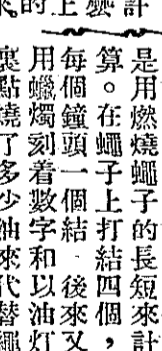 是用燃燒繩子的長短來計
算。在繩子上打結四個，
每個鐘頭一個結．後來又
用蠟燭刻着數字和以油灯
裏點燒了多少油來代替繩